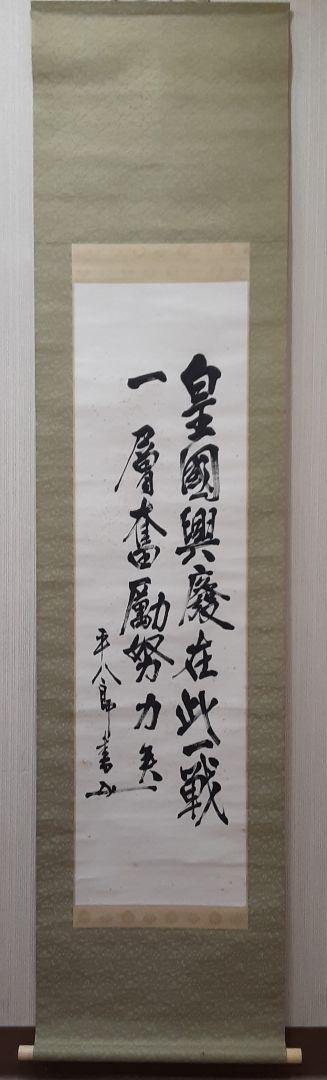 皇國興廢在此一戦
一層奮勵努力矣
平八郎書